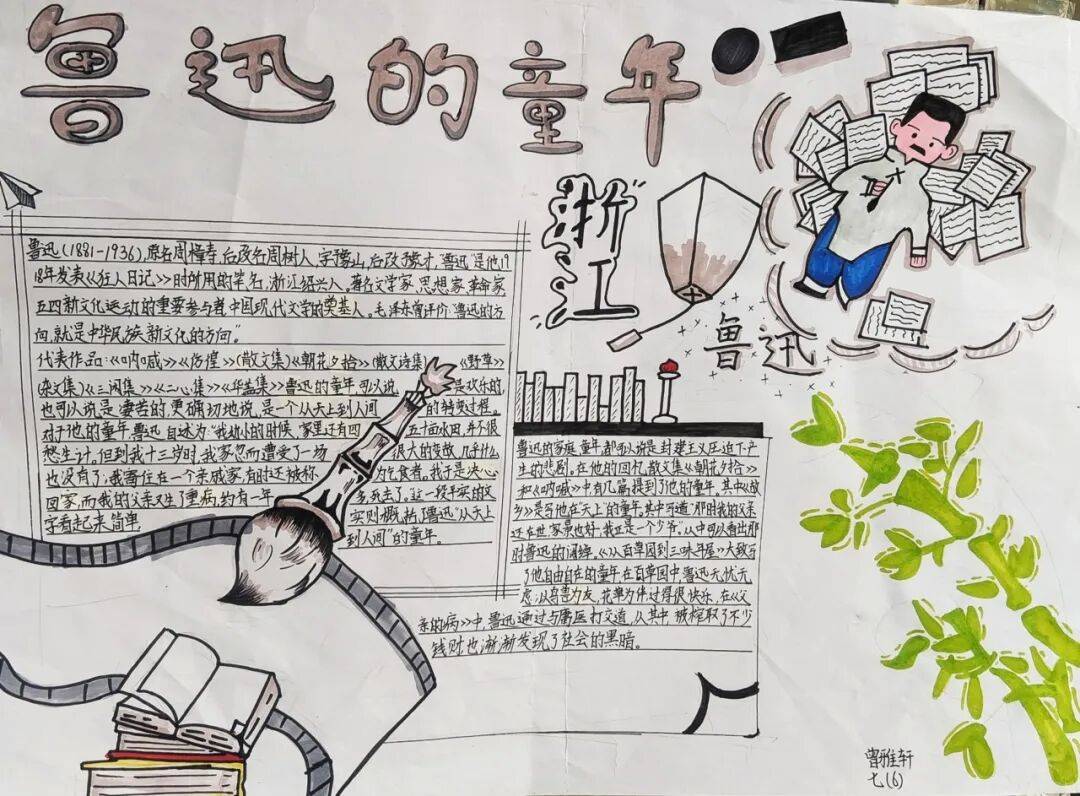 鲁迅的童年
浙江
鲁迅
鲁迅(1881-1936),原名周樟寿,后改名周树人,字豫山,后改豫才,"鲁迅"是他19
18年发表《狂人日记》时所用的笔名,浙江绍兴人。著名文学家、思想家、革命家
五四新文化运动的重要参与者,中国现代文学的奠基人。毛泽东曾评价:"鲁迅的方
向,就是中华民族新文化的方向。"
代表作品:《呐喊》《彷徨》(散文集)《朝花夕拾》(散文诗集)《野草》
(杂文集)《三闲集》《二心集》《华盖集》鲁迅的童年,可以说 是欢乐的
也可以说是凄苦的,更确切地说,是一个从天上到人间 的转变过程。
对于他的童年,鲁迅自述为:"我幼小的时候,家里还有四 五十亩水田,并不很
愁生计。但到我十三岁时,我家忽而遭受了一场 很大的变故,几乎什么
也没有了;我寄住在一个亲戚家,有时还被称 为乞食者。我于是决心
回家,而我的父亲又生了重病,约有一年 多,死去了。这一段平实的文
字看起来简单 实则概括了鲁迅"从天上
到人间"的童年。
鲁迅的家庭,童年,都可以说是封建主义压迫下产
生的悲剧。在他的回忆散文集《朝花夕拾》
和《呐喊》中有几篇提到了他的童年。其中《故
乡》是写他在天上"的童年,其中写道"那时我的父亲
还在世,家景也好,我正是一个少爷"。从中可以看出那
时鲁迅的《从百草园到三味书屋》大致写
了他自由自在的童年,在百草园中,鲁迅无忧无
虑,以鸟兽为友,花草为伴过得很快乐,在《父
亲的病》中,鲁迅通过与庸医打交道,从其中被榨取了不少
钱财也渐渐发现了社会的黑暗。
曾雅轩
七(6)